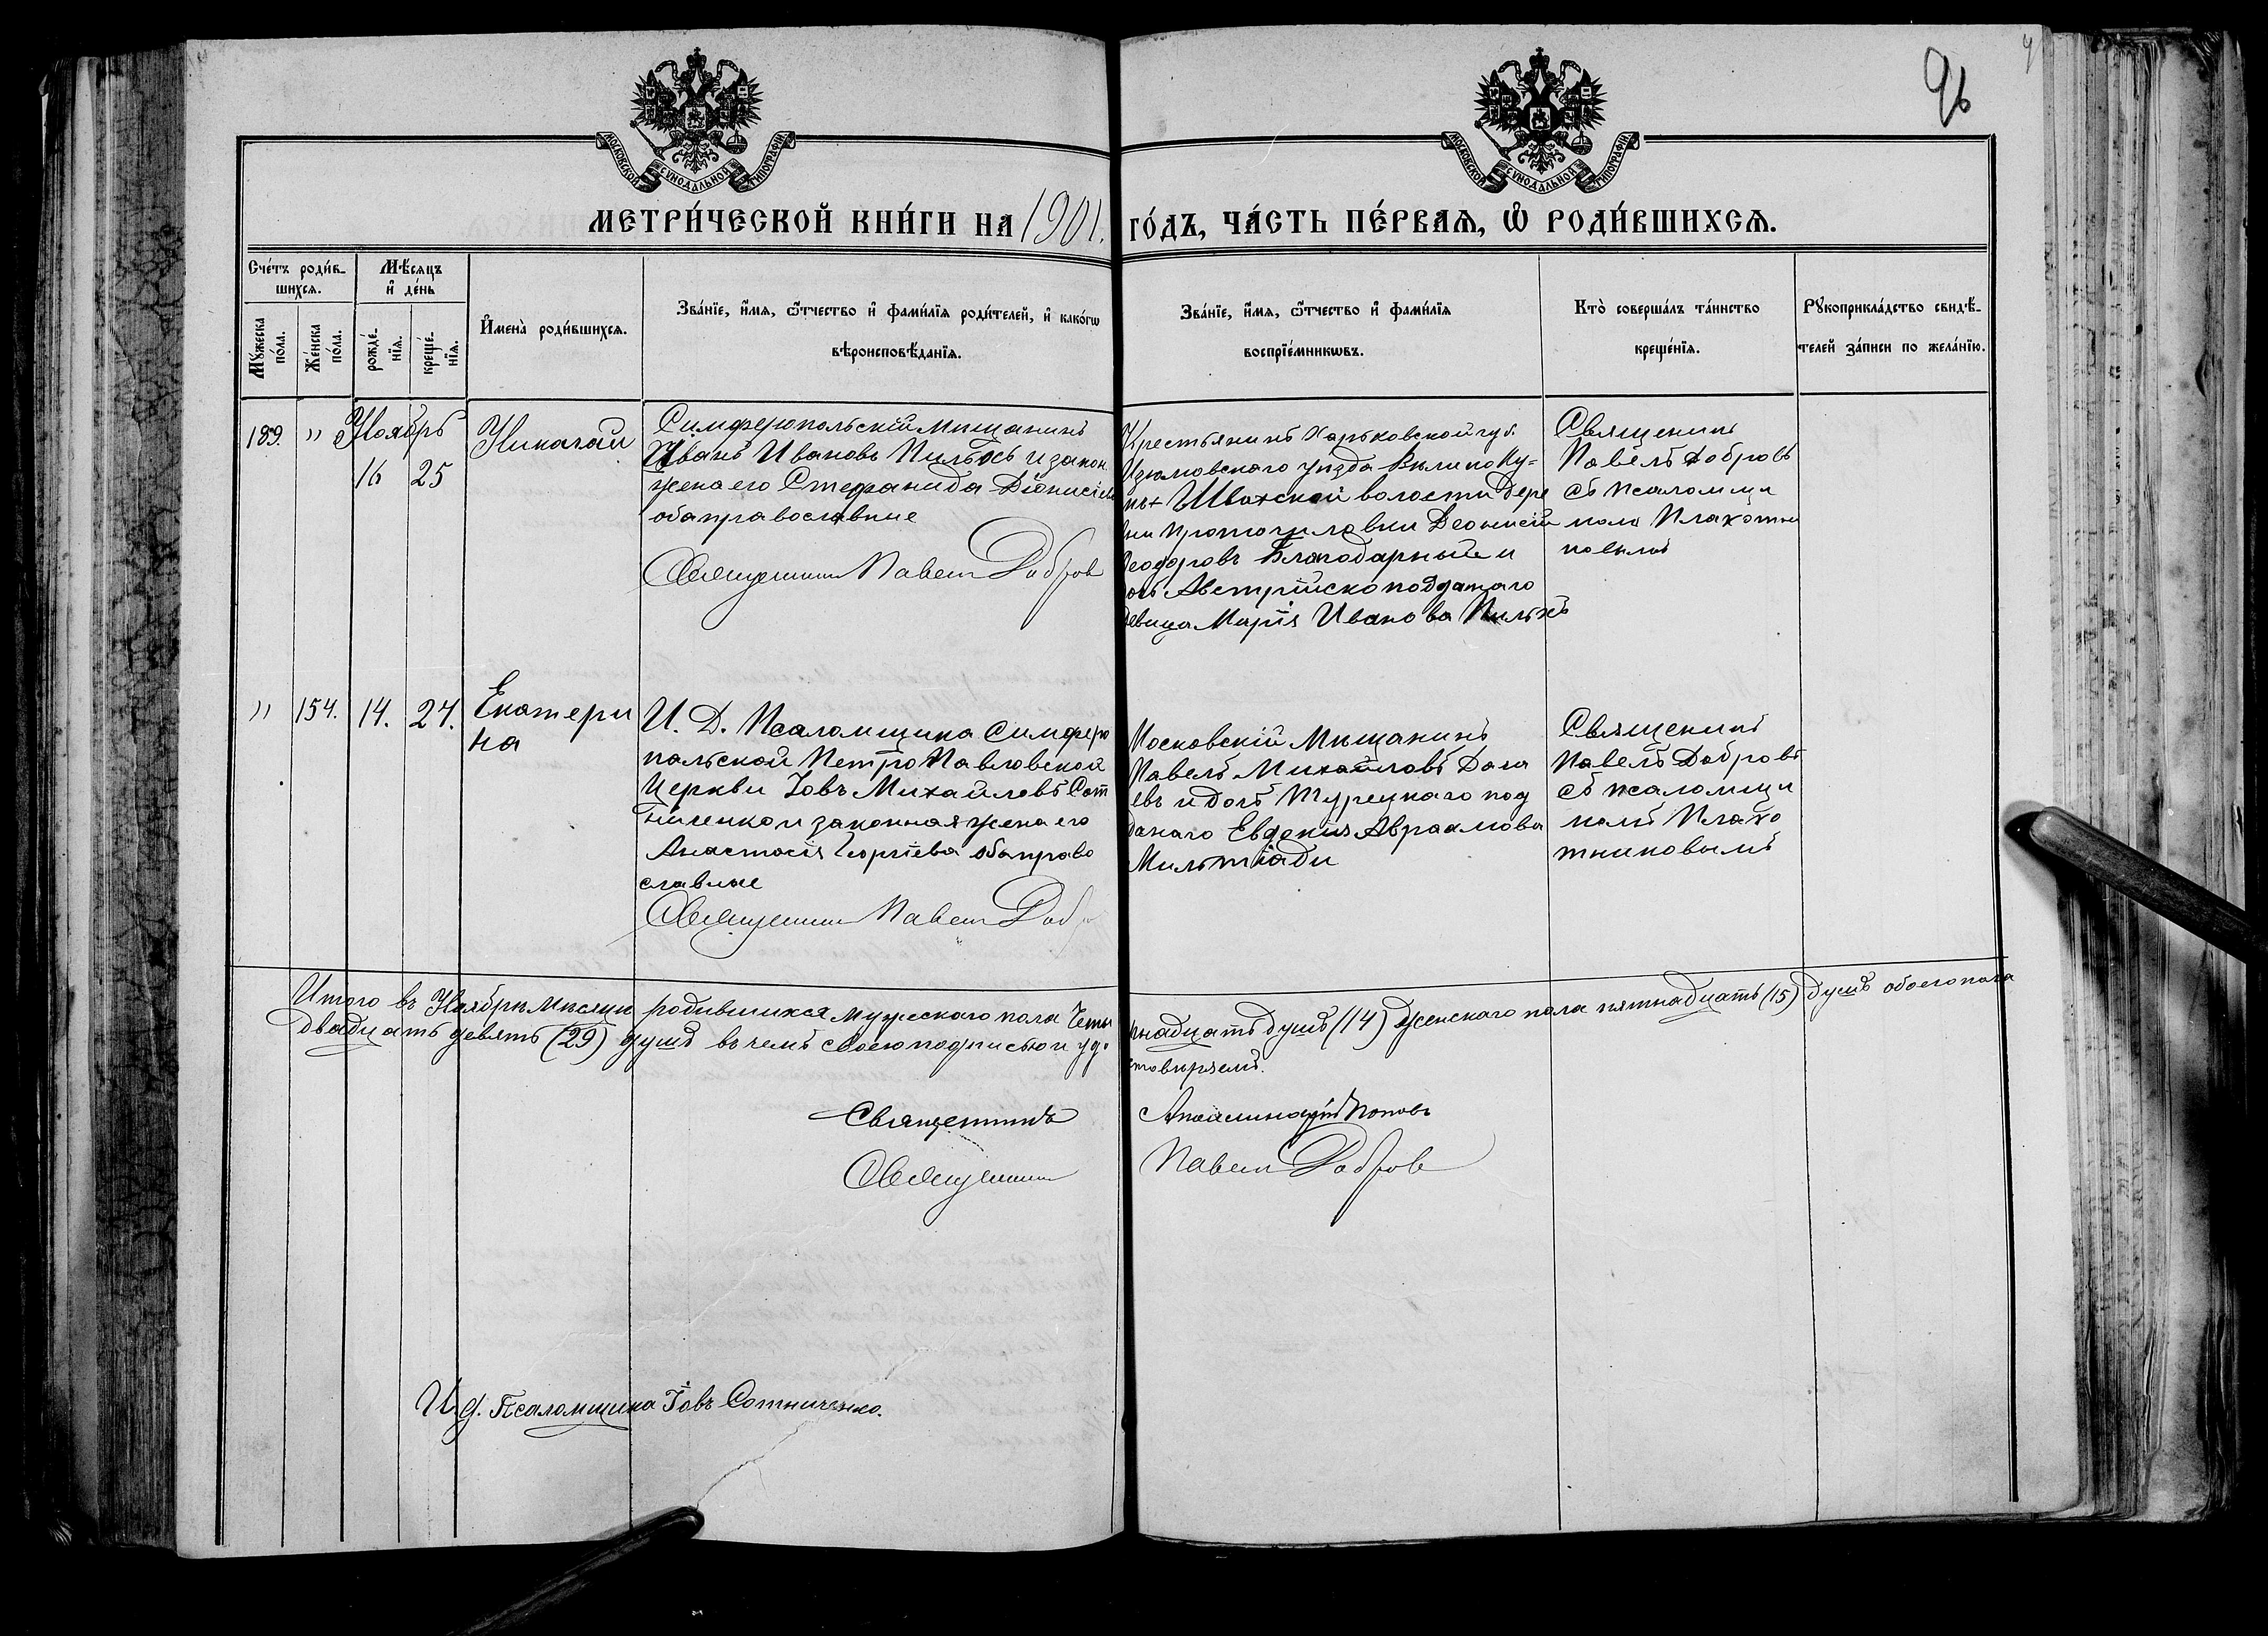 96
МОСКОВСКОЙ СУНОДАЛЬНОЙ ТИПОГРАФІИ
МОСКОВСКОЙ СУНОДАЛЬНОЙ ТИПОГРАФІИ
МЕТРИ́ЧЕСКОЙ КНИ́ГИ НА 1901. ГО́ДЪ, ЧА́СТЬ ПЕ́РВАѦ, Ѡ҆ РОДИ́ВШИХСѦ.
Сче́тъ роди́в-
шихсѧ.
Мꙋ́жеска по́ла.
Же́нска по́ла.
Мѣ́сѧцъ
и҆ де́нь
рожде́-
нїѧ.
креще́-
нїѧ.
И҆мена̀ роди́вшихсѧ.
Зва́нїе, и҆́мѧ, ѻ҆́тчество и҆ фами́лїѧ роди́телей, и҆ како́гѡ
вѣроисповѣ́данїѧ.
Зва́нїе, и҆́мѧ, ѻ҆́тчество и҆ фами́лїѧ
воспрїе́мникѡвъ.
Кто̀ соверша́лъ та́инство
креще́нїѧ.
Рꙋкоприкла́дство свидѣ́-
телей за́писи по жела́нїю.
189. " Ноябрь
16 25
Николай
Симферопольскій мѣщанинъ
Иванъ Ивановъ Пильхъ и закон
жена его Стефанида Діонисіева
оба православные
Священникъ Павелъ Добровъ
Крестьянинъ Харьковской губ.
Изюмовскаго уѣзда
волости дере
вни Протопиловки Деонисій
Ѳеодоровъ Благодарный и
дочь Австрійскоподданаго
девица Марія Иванова Пильхъ
Священникъ
Павелъ Добровъ
съ псаломщи
комъ Плахотни
ковымъ
" 154. 14. 27.
Екатери
на
И. Д. Псаломщика Симферо
польской Петро Павловской
Церкви Іовъ Михайловъ Сот
ниченко и законная жена его
Анастасія Георгіева оба право
славные
Священникъ Павелъ Добр
Московскій Мѣщанинъ
Павелъ Михайловъ
евъ и дочь Турецкаго под
данаго Евдокія Авраамова
Мильтіади
Священникъ
Павелъ Добровъ
съ псаломщи
комъ Плахо
тниковымъ
Итого въ Ноябрѣ мѣсяцѣ родившихся мужескаго пола Четы рнадцать душъ (14) женскаго пола пятнадцать (15) душъ обоего пола
двадцать девять (29) душъ въ чемъ своею подписью и удо стовѣряемъ.
Священникъ Аполлинарій Поповъ
Священникъ Павелъ Добровъ
И. д. Псаломщика Іовъ Сотниченко.